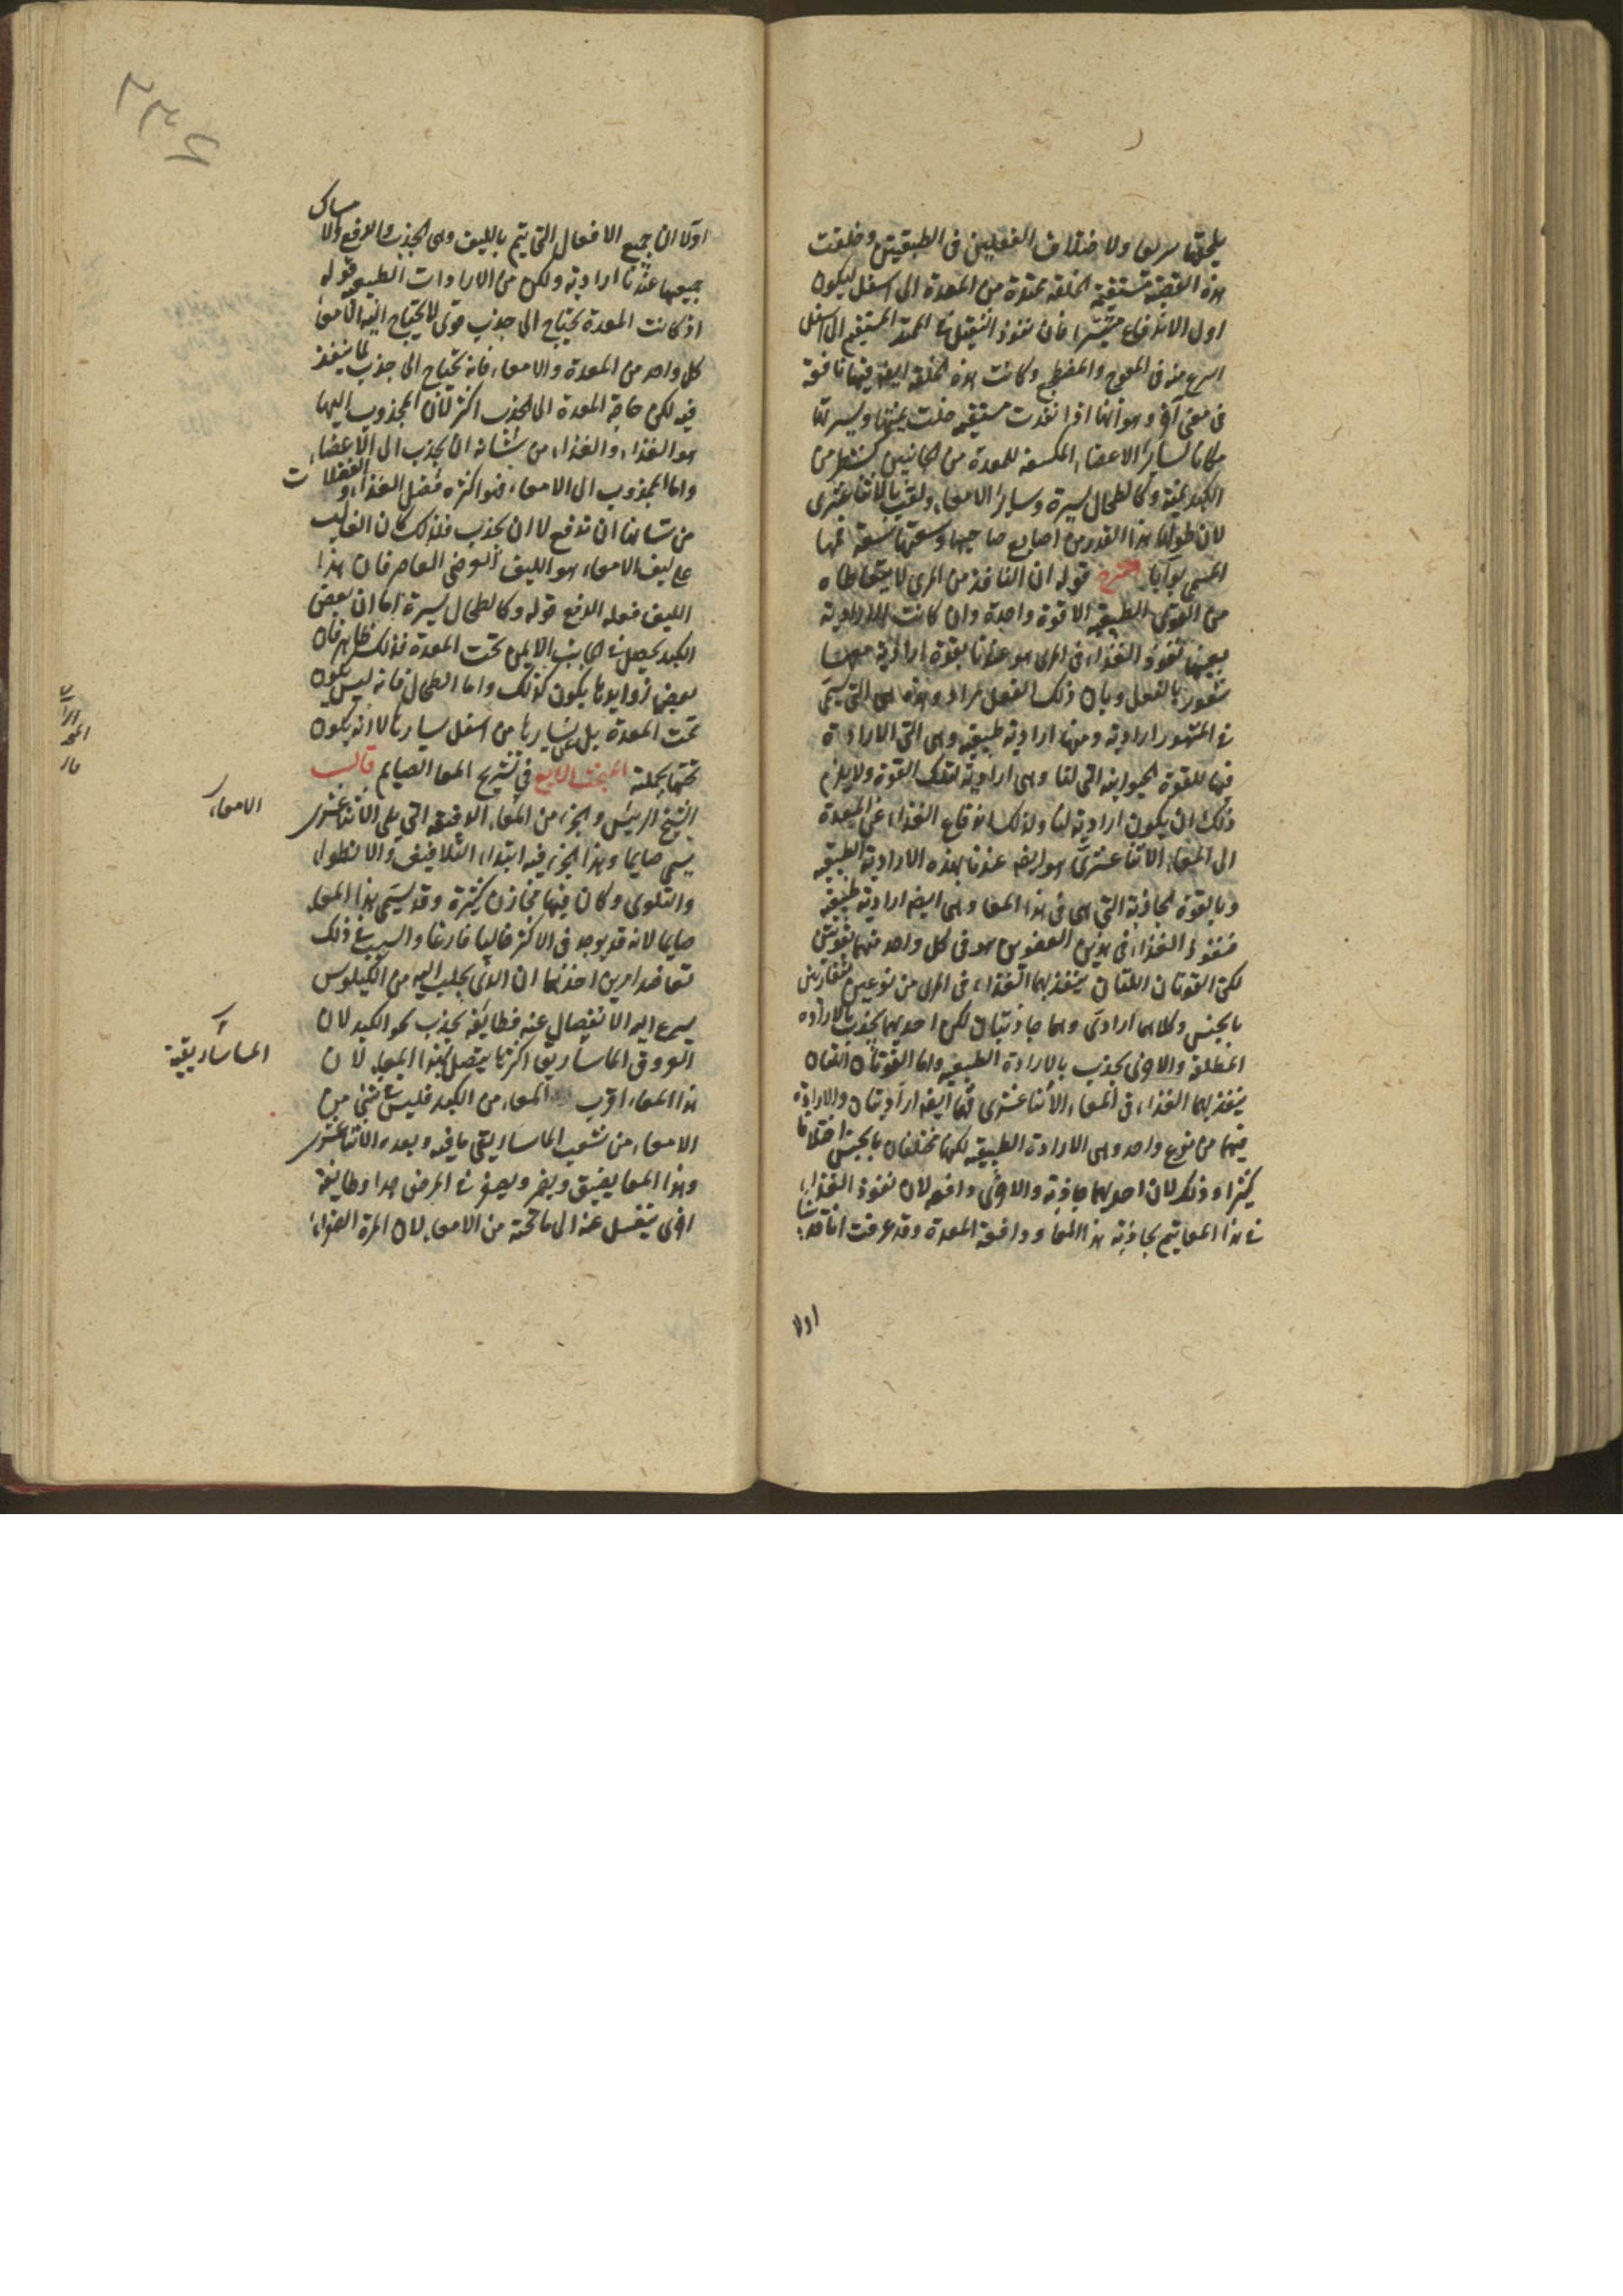 يلحقها سريعا ولاختلاف الفعلين فى الطبقتين وخلقت
هذه القصبة مستقيمة الخلقة ممتدة من المعدة الى اسفل ليكون
اول الاندفاع متيسرا فان نفوذ الثقيل فى الممتد المستقيم الى اسفل
اسرع منه فى المعوج والمضطجع وكانت هذه الخلقة ايضا فيها نافعة
فى معنى آخر وهو انها اذا نفذت مستقيمة خلت يمنتها ويسرتها
مكانا لساير الاعضاء المكتنفة للمعدة من الجانبين كشطر من
الكبد يمنة وكالطحال يسرة وساير الامعاء ولقب بالاثناعشرى
لان طولها هذا القدر من اصابع صاحبها وسعتها سعة فمها
المسمى بوابا الشرح قوله ان النافذ من المرى لا يتعاطاه
من القوى الطبيعية الا قوة واحدة وان كانت الارادية
تعينها نفوذ الغذاء فى المرى هو عندنا بقوة ارادية معها
شعور بالفعل وبان ذلك الفعل مراد وهذه هى التى تسمى
فى المشهور ارادية ومنها ارادية طبيعية وهى التى الارادة
فيها للقوة الحيوانية التى لنا وهى ارادية لتلك القوة ولا يلزم
ذلك ان يكون ارادية لنا ولذلك اندفاع الغذاء عن المعدة
الى المعاء الاثناعشرى هو ايضا عندنا بهذه الارادية الطبيعية
وبالقوة الجاذبة التى هى فى هذا المعا وهى ايضا ارادية طبيعية
فنفوذ الغذاء فى هذين العضوين هو فى كل واحد منهما بقوتين
لكن القوتان اللتان ينفذ بهما الغذاء فى المرى من نوعين متغايرين
بالجنس وكلاهما ارادى وهما جاذبتان لكن احديهما بجذب بالارادة
المطلقة والاخرى بجذب بالارادة الطبيعية واما القوتان اللتان
ينفذ بهما الغذاء فى المعاء الاثناعشرى فهما ايضا اراديتان والارادة
فيهما من نوع واحد وهى الارادة الطبيعية لكنهما مختلفان بالجنس اختلافا
كثيرا وذلك لان احديهما جاذبة والاخرى دافعة لان نفوذ الغذاء
فى هذا المعا يتم بجاذبة هذا المعا ودافعة المعدة وقد عرفت انا قد بينا
اولا
اولا ان جميع الافعال التى يتم بالليف وهى الجذب والدفع والا
مساك
جميعها عندنا ارادية ولكن من الارادات الطبيعية قوله
اذ كانت المعدة يحتاج الى جذب قوى لا يحتاج اليه الامعا
كل واحد من المعدة والامعاء فانه يحتاج الى جذب لما ينفذ
فيه لكن حاجة المعدة الى الجذب اكثر لان المجذوب اليها
هو الغذاء والغذاء من شانه ان يجذب الى الاعضاء
واما المجذوب الى الامعاء فهو اكثره فضل الغذاء والفضلات
من شانها ان تدفع لا ان تجذب فلذلك كان الغالب
على ليف الامعاء هو الليف العرضى العاصر فان هذا
الليف فعله الدفع قوله وكالطحال يسرة اما ان بعض
الكبد يحصل فى الجانب الايمن تحت المعدة فذلك ظاهر فان
بعض زوايدها يكون كذلك واما الطحال فانه ليس يكون
تحت المعدة بل عن يسارها من اسفل يسارها لا انه يكون
تحتها بجملته المبحث الرابع فى تشريح المعا الصايم قال
الشيخ الرئيس والجزء من المعاء الدقيقة التى يلى الاثناعشرى
الامعاء
يسمى صايما وهذا الجزء فيه ابتداء التلافيف والانطواء
والتلوى وكان فيها مخازن كثيرة وقد يسمى هذا المعاء
صايما لانه قد يوجد فى الاكثر خاليا فارغا والسبب فى ذلك
تعاضد امرين احدهما ان الذى يجلب اليه من الكيلوس
يسرع اليه الانفصال عنه فطايفة يجذب نحو الكبد لان
العروق الماساريقا اكثرها يتصل بهذا المعاء لان
الماساريقية
هذا المعاء اقرب المعاء من الكبد فليس فى شئ من
الامعاء من شعب الماساريقى ما فيه وبعده الاثناعشرى
وهذا المعا يضيق ويضمر ويصغر فى المرض جدا وطايفة
اخرى ينغسل عنه الى ما تحته من الامعاء لان المرة الصفراء